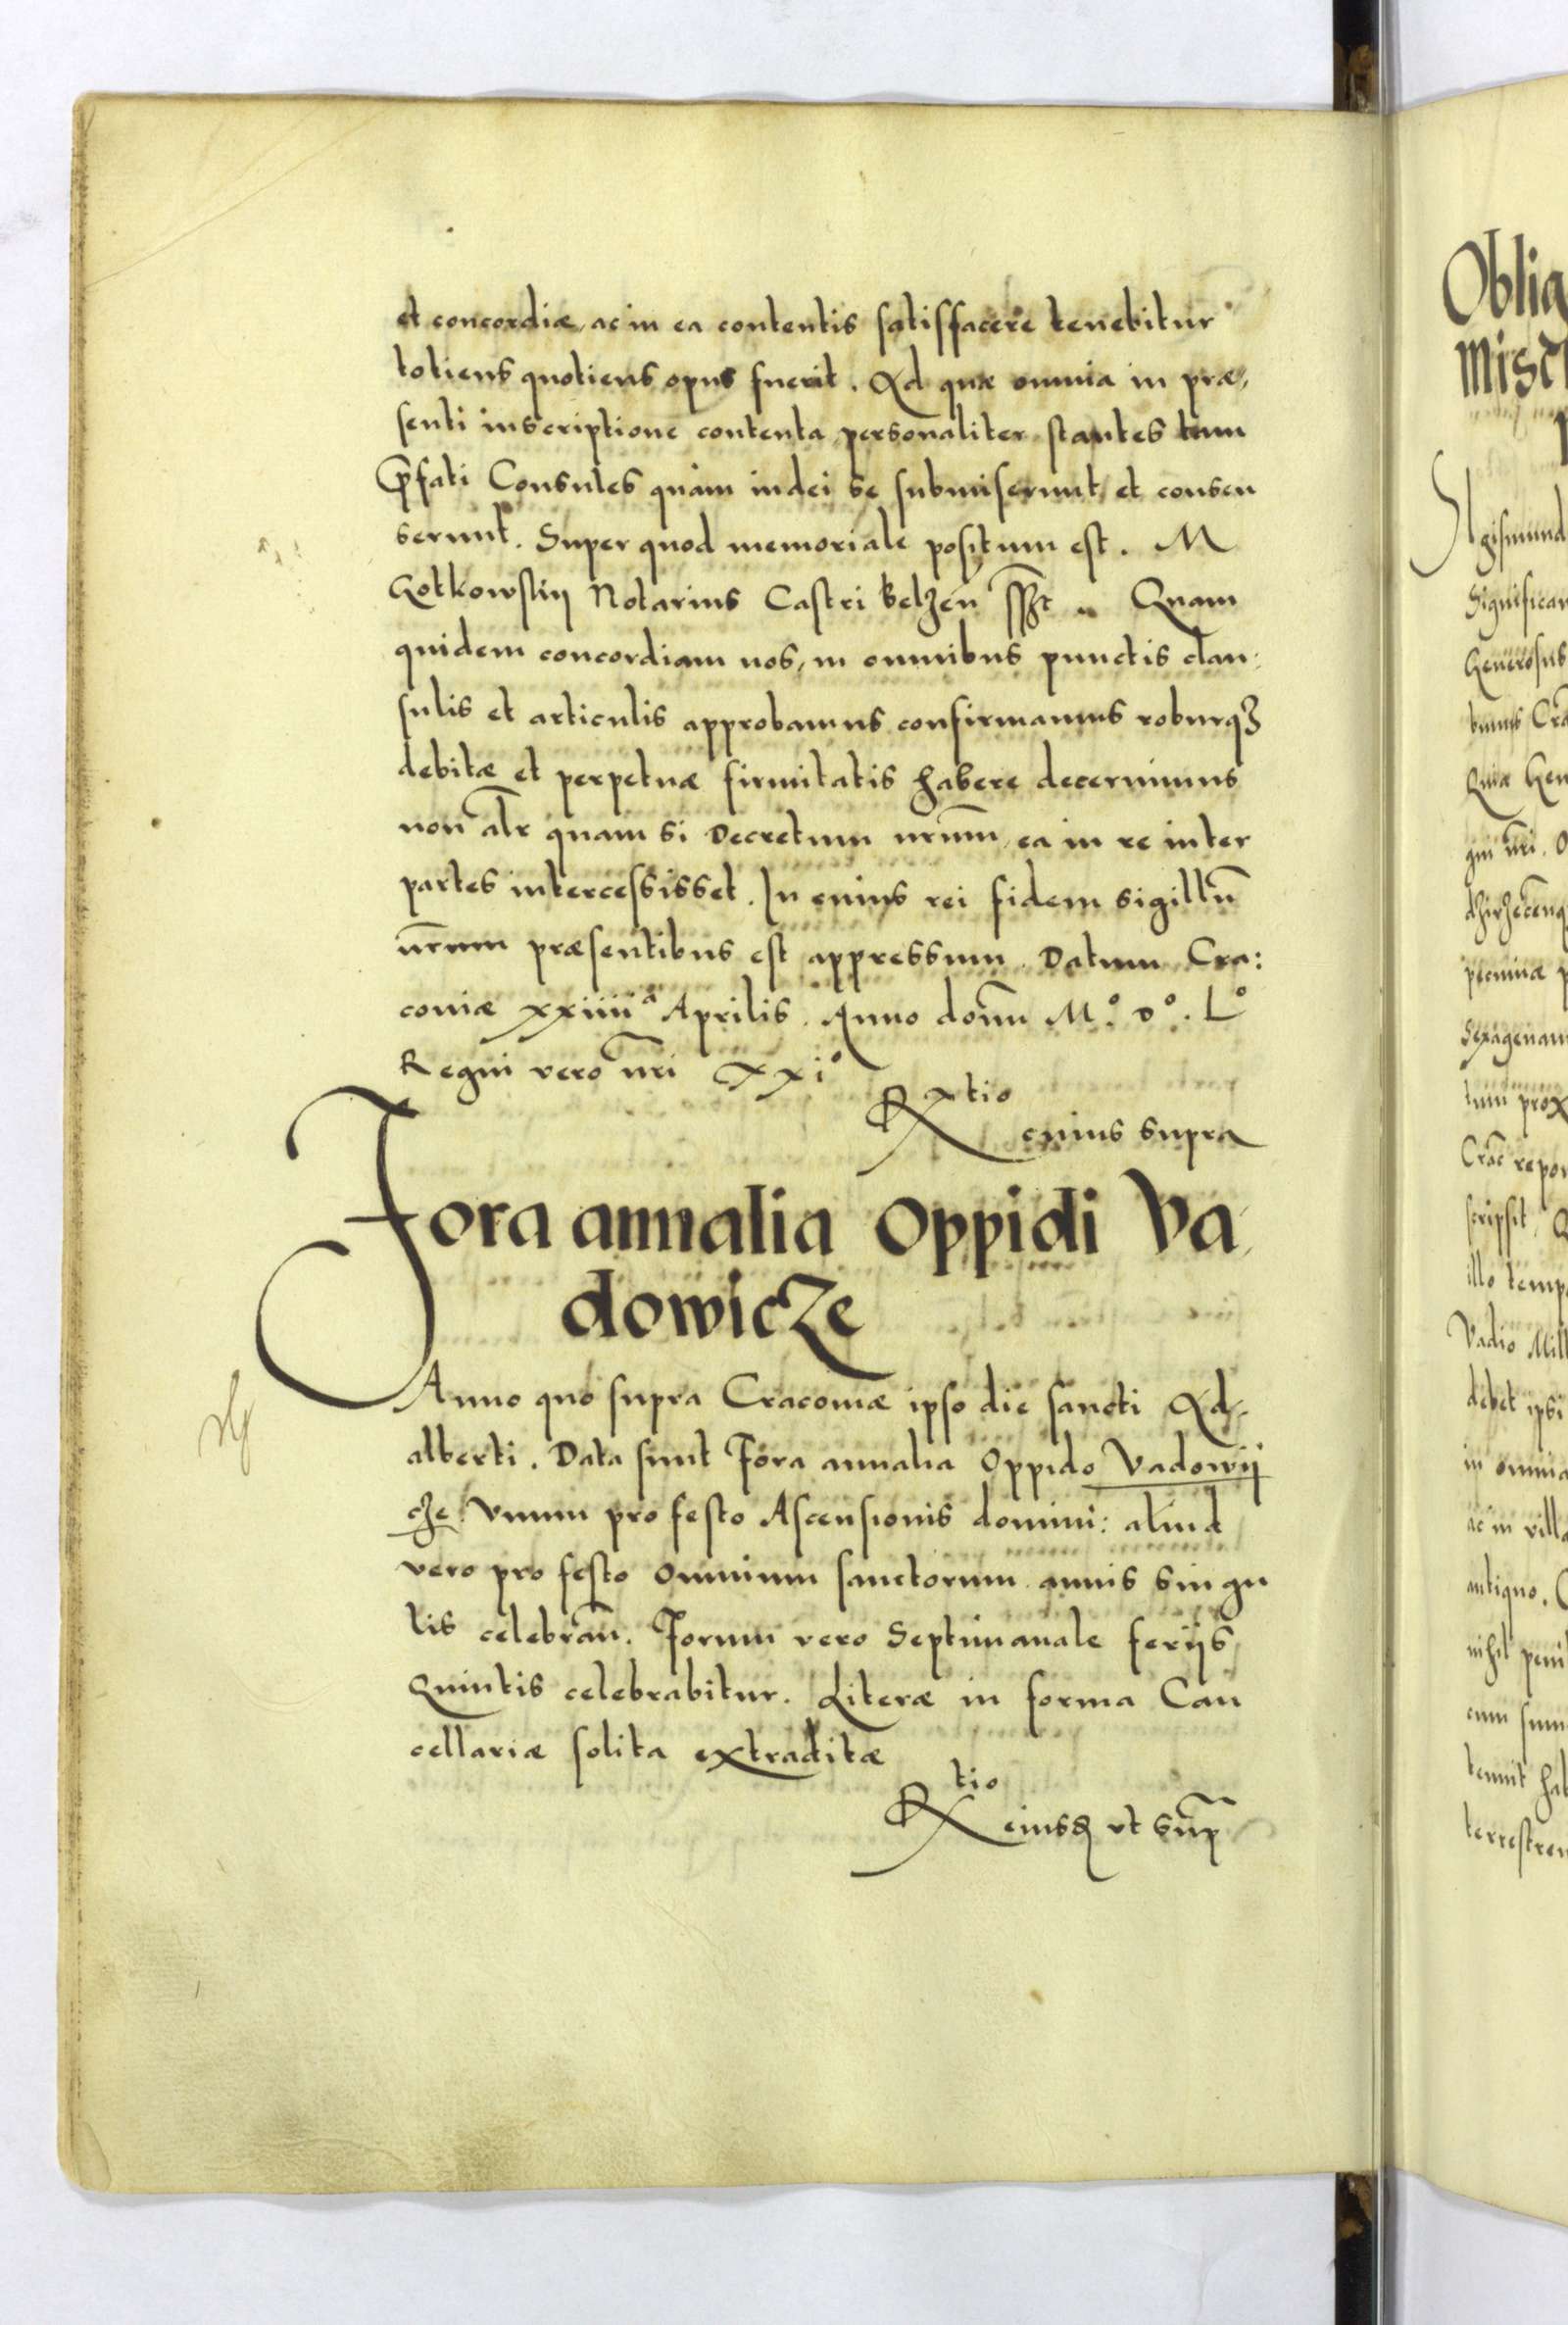 et concordiæ, ac in ea contentis satisfacere tenebitur
totiens quotiens opus fuerit. Ad quæ omnia in præ,
senti inscriptione contenta personaliter stantes tum
p̄fati Consules quam iudei se submiserunt, et consen
serunt. Super quod memoriale positum est. M
Gotkowskij Notarius Castri Belzen̄ Quam
quidem concordiam nos, in omnibus punctis clau:
sulis et articulis approbamus confirmamus roburqꝫ
debitæ et perpetuæ firmitatis habere decernimus
non alr̄ quam si Decretum nr̄um, ea in re inter
partes intercessisset. In cuius rei fidem sigillū
nr̄um præsentibus est appressum. Datum Cra:
coviæ xxiiii ͣ Aprilis. Anno domn̄ M°. D°. L°
Regni vero nr̄i xxi°
Rtio
cuius supra
Fora annalia Oppidi Va,
dowicze
Anno quo supra Cracoviæ ipso die sancti Ad,
alberti. Data sunt Fora annalia Oppido Vadowij
cze Vnum pro festo Ascensionis domini: aliud
vero pro festo Omnium sanctorum annis singu
lis celebran̄. Forum vero Septimanale feriis
Quintis celebrabitur. Literæ in forma Can
cellariæ solita extraditæ
Rtio
eiusd vt sup̄
Oblig
Misc
Sigismund
Significam
Generosus
Quia Gen
gni nr̄i. O
pecuniæ p
Sexagenam
tum prox
Crac̄ repo
scripsit, Q
illo temp
Vadio Mill
debet ipsi
in omnia
ac in villa
antiquo. C
nihil peni
cum sum
tenuit hab
terrestrem